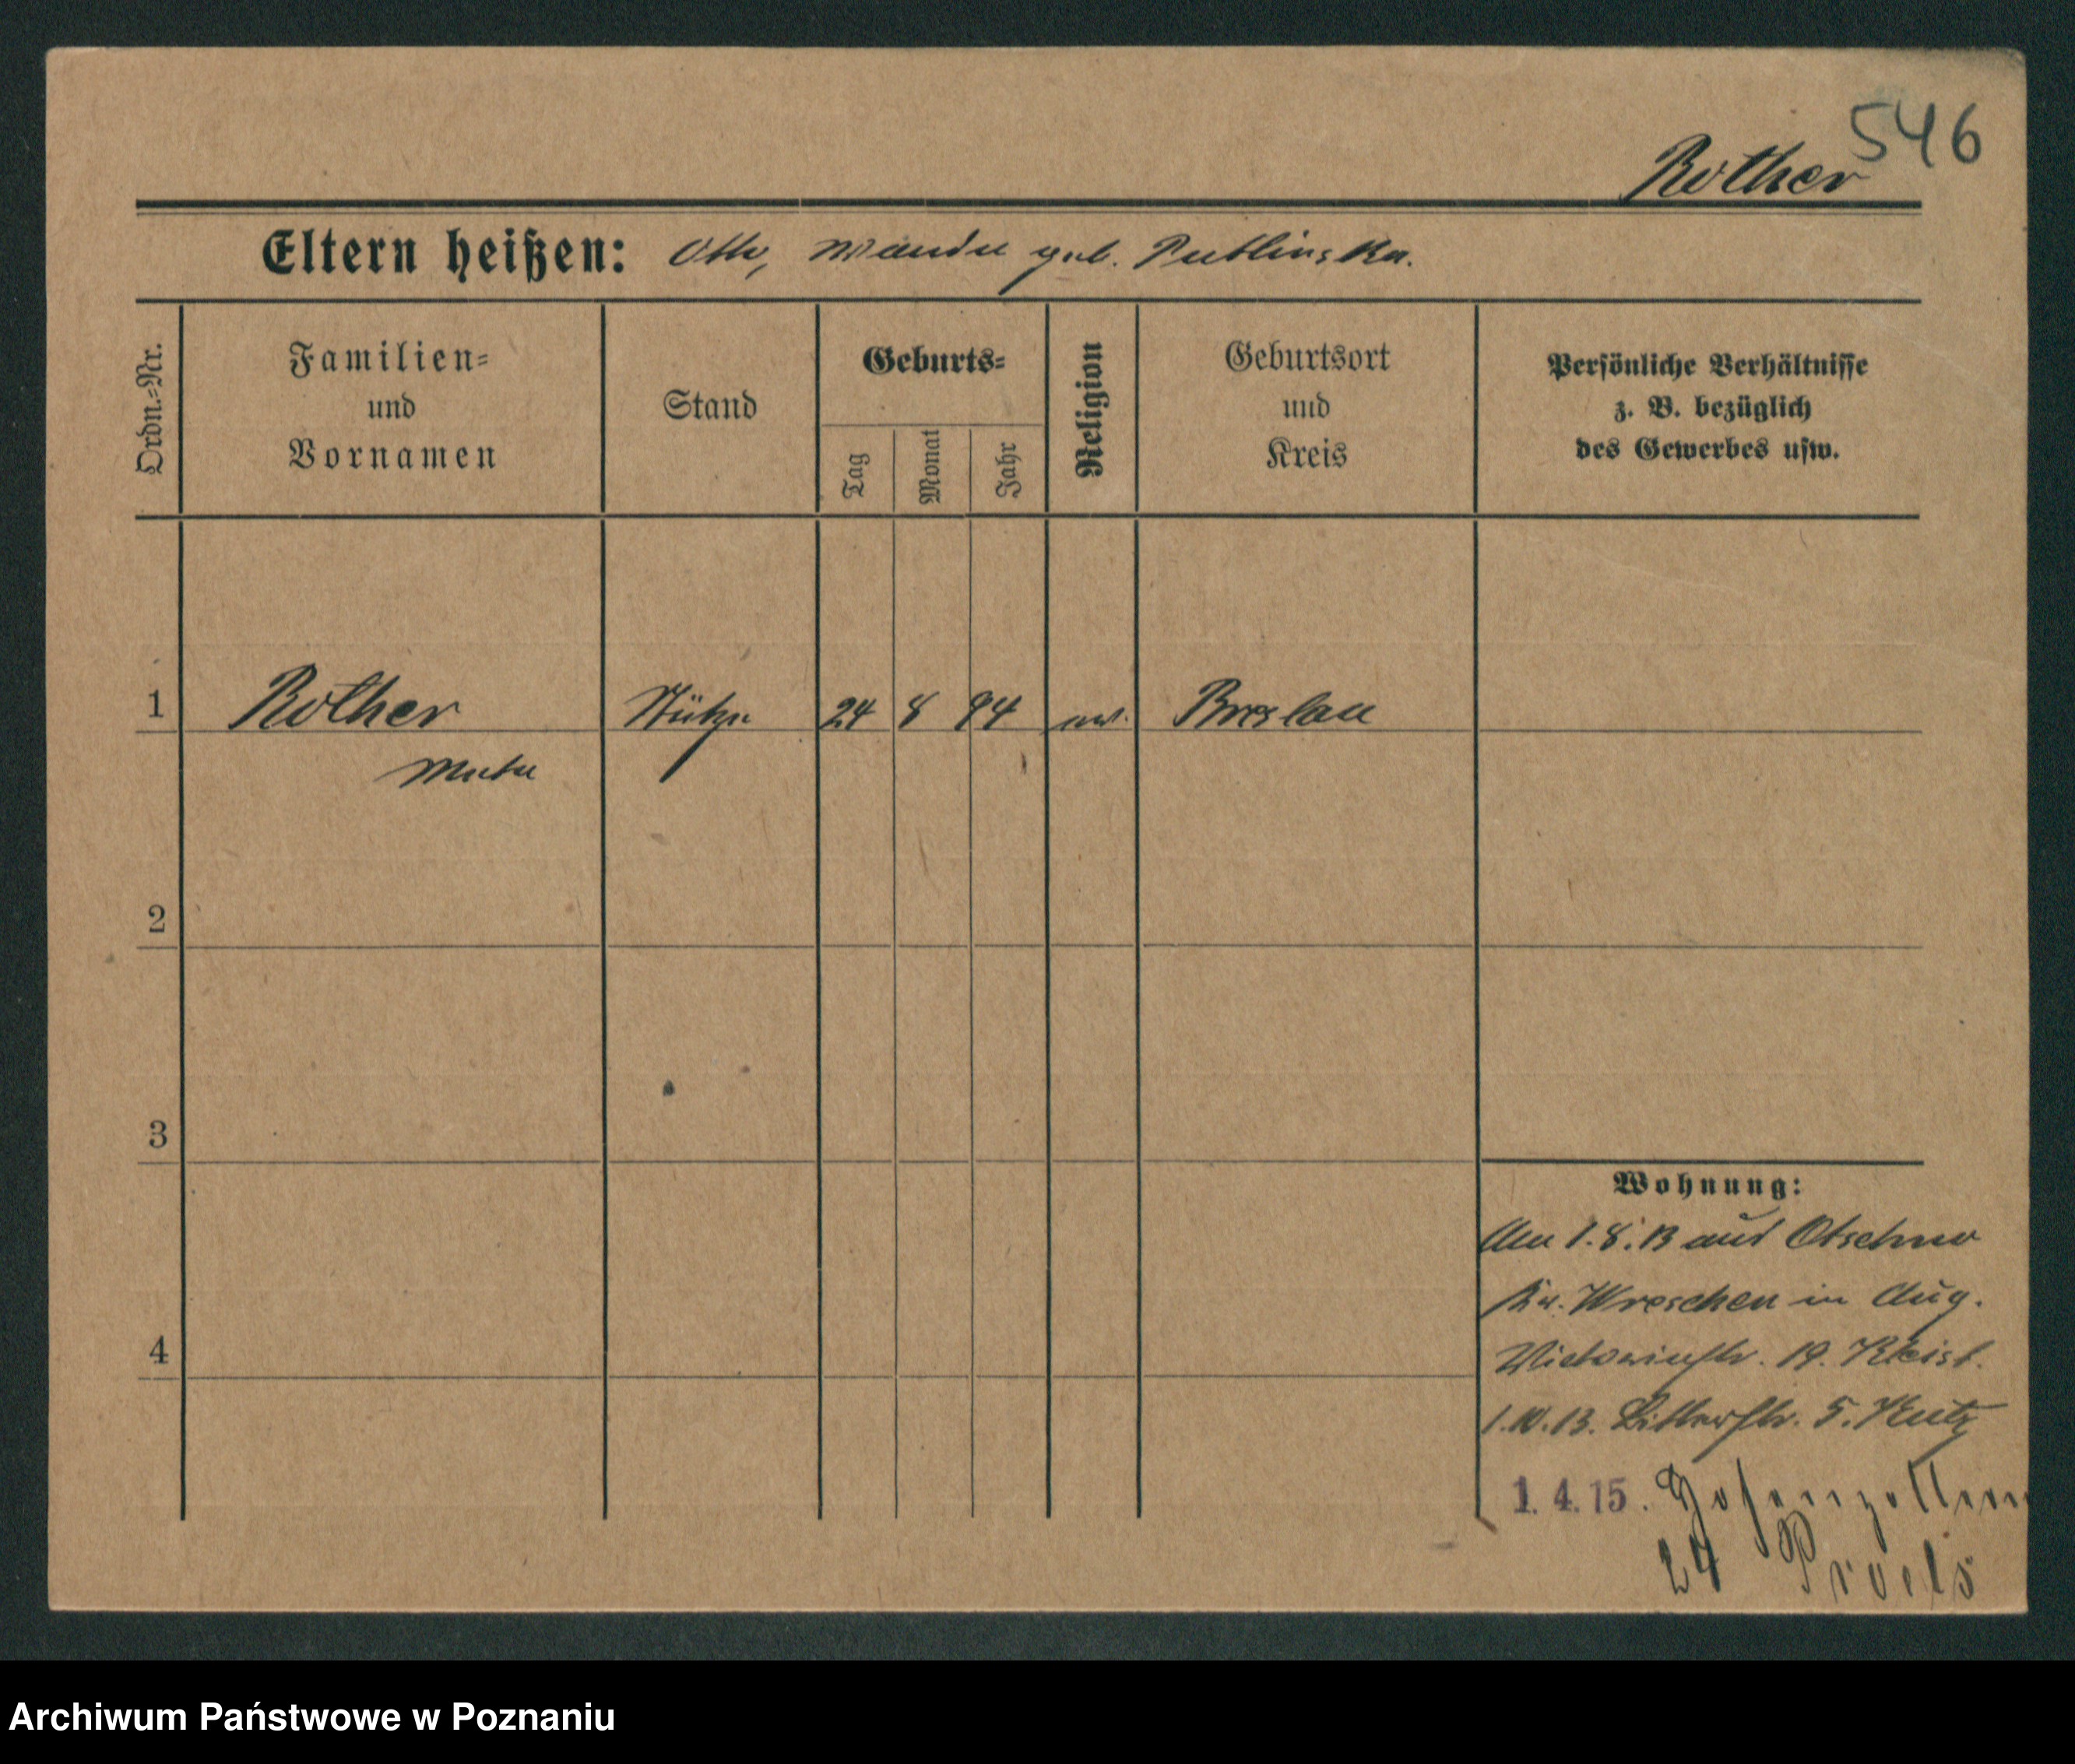 546
Rother
Eltern heißen: Otto, Wanda geb. Publinska.
Ordn.=Nr.
Familien=
und
Vornamen
Stand
Geburts=
Tag
Monat
Jahr
Religion
Geburtsort
und
Kreis
Persönliche Verhältnisse
z. B. bezüglich
des Gewerbes usw.
1 Rother Stütze 24 8 94 ev. Breslau
Meta
2
3
4
Wohnung:
Am 1.8.13 aus Otschno
Kr. Wreschen in Aug.
Victoriastr. 19. Kleist.
1.10.13. Ritterstr. 5.
1. 4. 15. Hohenzollern
24 Proels
Archiwum Państwowe w Poznaniu